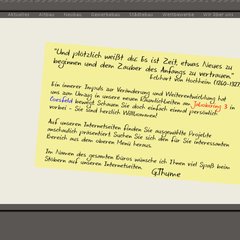 Aktuelles Altbau Neubau Gewerbebau Städtebau Wettbewerbe Wir über uns
"Und plötzlich weißt du: Es ist Zeit, etwas Neues zu
beginnen und dem Zauber des Anfangs zu vertrauen."
Eckhart von Hochheim (1260-1327)
Ein innerer Impuls zur Veränderung und Weiterentwicklung hat
uns zum Umzug in unsere neuen Räumlichkeiten am Jakobiring 3 in
Coesfeld bewegt. Schauen Sie doch einfach einmal persönlich
vorbei - Sie sind herzlich Willkommen!
Auf unseren Internetseiten finden Sie ausgewählte Projekte
anschaulich präsentiert. Suchen Sie sich den für Sie interessanten
Bereich aus dem oberen Menü heraus.
Im Namen des gesamten Büros wünsche ich Ihnen viel Spaß beim
Stöbern auf unseren Internetseiten.
G.Thume